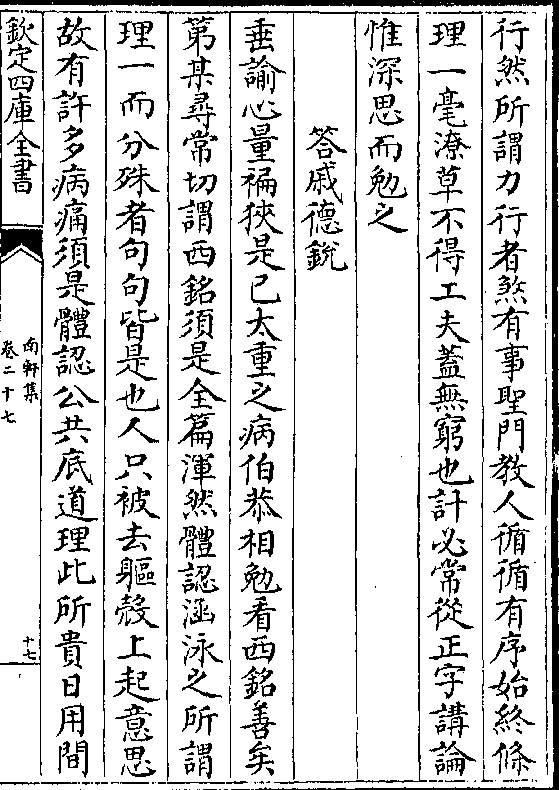 行然所謂力行者煞有事聖門教人循循有序始終條
理一毫潦草不得工夫蓋無窮也計必常從正字講論
惟深思而勉之
答戚德銳
垂諭心量褊狹是已太重之病伯恭相勉看西銘善矣
第某尋常切謂西銘須是全篇渾然體認涵泳之所謂
理一而分殊者句句皆是也人只被去軀殼上起意思
故有許多病痛須是體認公共底道理此所貴日用間
欽定四庫全書
南軒集
卷二十七
十七